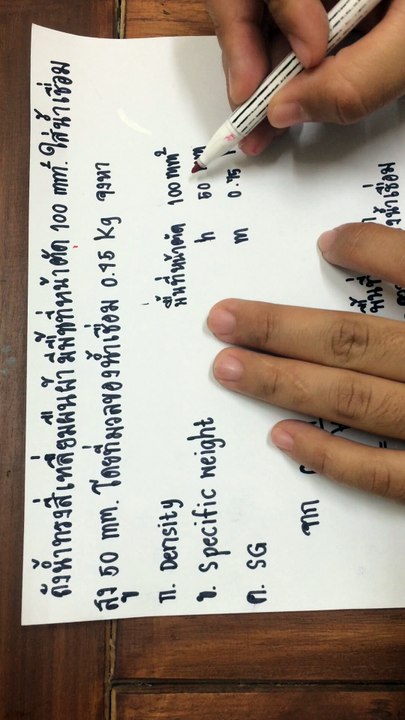 ถังน้ำทรงสี่เหลี่ยมผืนผ้า มีพื้นที่หน้าตัด 100 mm² ใส่น้ำเชื่อม
สูง 50 mm. โดยที่มวลของน้ำเชื่อม 0.15 Kg จงหา
ก. Density
ข. Specific weight
ค. SG
มีพื้นที่หน้าตัด 100 mm²
h 50 mm
m 0.15
จาก